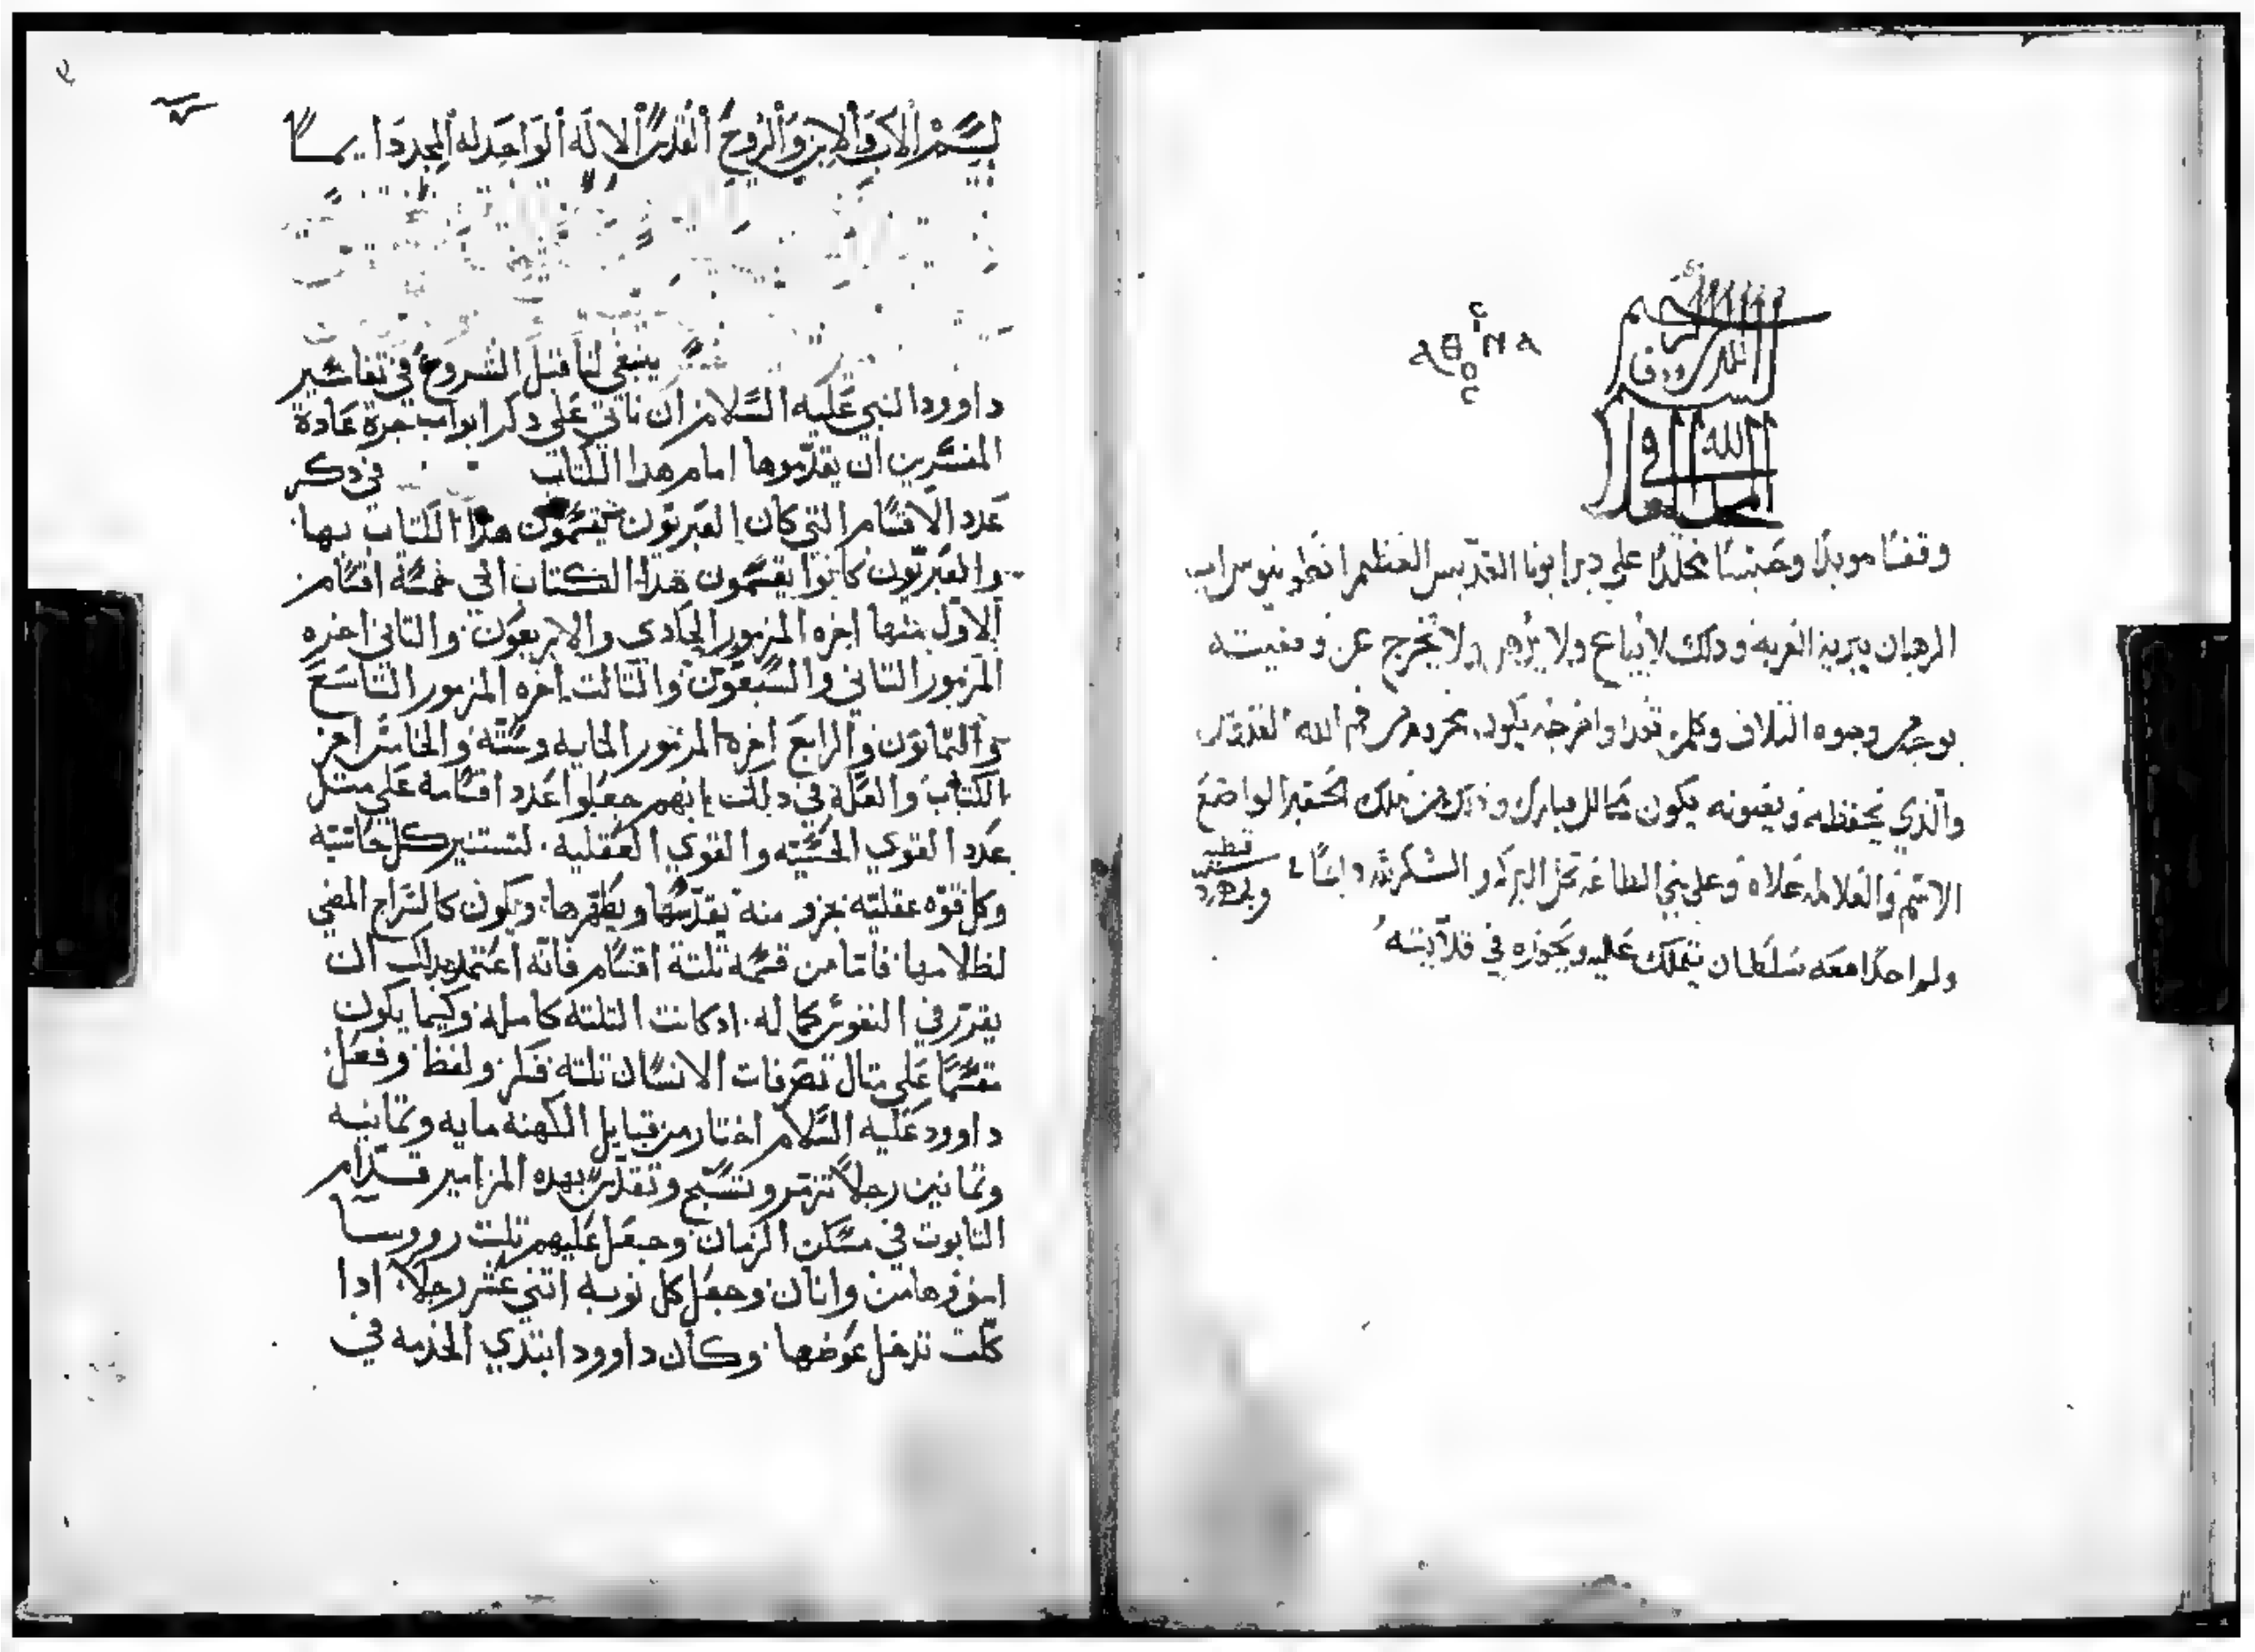 بسم الله الرووف الرحيم
المجد لله في العلا
وقفا موبدا وحبسا مخلدا على دير ابونا القديس العظيم انطونيوس اب
الرهبان ببرية العربه وذلك لا يباع ولا يرهن ولا يخرج عن وقفيته
بوجه من وجوه التلاف وكلمن تعدا واخرجه يكون محروم من فم الله
والذي يحفظه ويصونه يكون محالل مبارك وذلك من ملك الحقير الواضع
الاسم والعلامه علاه وعلى بني الطاعه تحل البركه والشكر لله دايما
ولم احدا معه سلطان يتملك عليه ويحوزه في قلايته
بسم الاب والابن والروح القدس الاله الواحد له المجد دايما
ينبغي لنا قبل الشروع في تفاسير
داوود النبي عليه السلام ان ناتي على دكر ابواب جرة عادة
المفسرين ان يقدموها امام هدا الكتاب في دكر
عدد الاقسام التي كان العبريون يقسمون هدا الكتاب بها
والعبريون كانوا يقسمون هدا الكتاب الي خمسة اقسام
الاول منها اخره المزمور الحادى والاربعون والتاني اخره
المزمور التاني والسبعون والتالت اخره المزمور التاسع
والتمانون والرابع اخره المزمور المايه وسته والخامس اخر
الكتاب والعلة في دلك انهم جعلوا عدد اقسامه علي متل
عدد القوي الحسيه والقوي العقليه لتستنير كل حاسة
وكل قوه عقليه بجزو منه يقدسها ويطهرها ويكون كالسراج المضي
لظلامها فاما من قسمه تلتة اقسام فانه اعتمد بدلك ان
يقرر في النفوس كماله ادكانت التلته كامله وكيما يكون
مقسما علي متال تصرفات الانسان تلته فكر ولفظ وفعل
داوود عليه السلام اختار من قبايل الكهنه مايه وتمانيه
وتمانين رجلا تزمر وتسبح وتقدس بهده المزامير قدام
التابوت في مسكن الزمان وجعل عليهم تلت رووسا
اسوفرهامن واتان وجعل كل نوبه اتني عشر رجلا ادا
كلت تدخل عوضها وكان داوود ابتدي الخدمه في